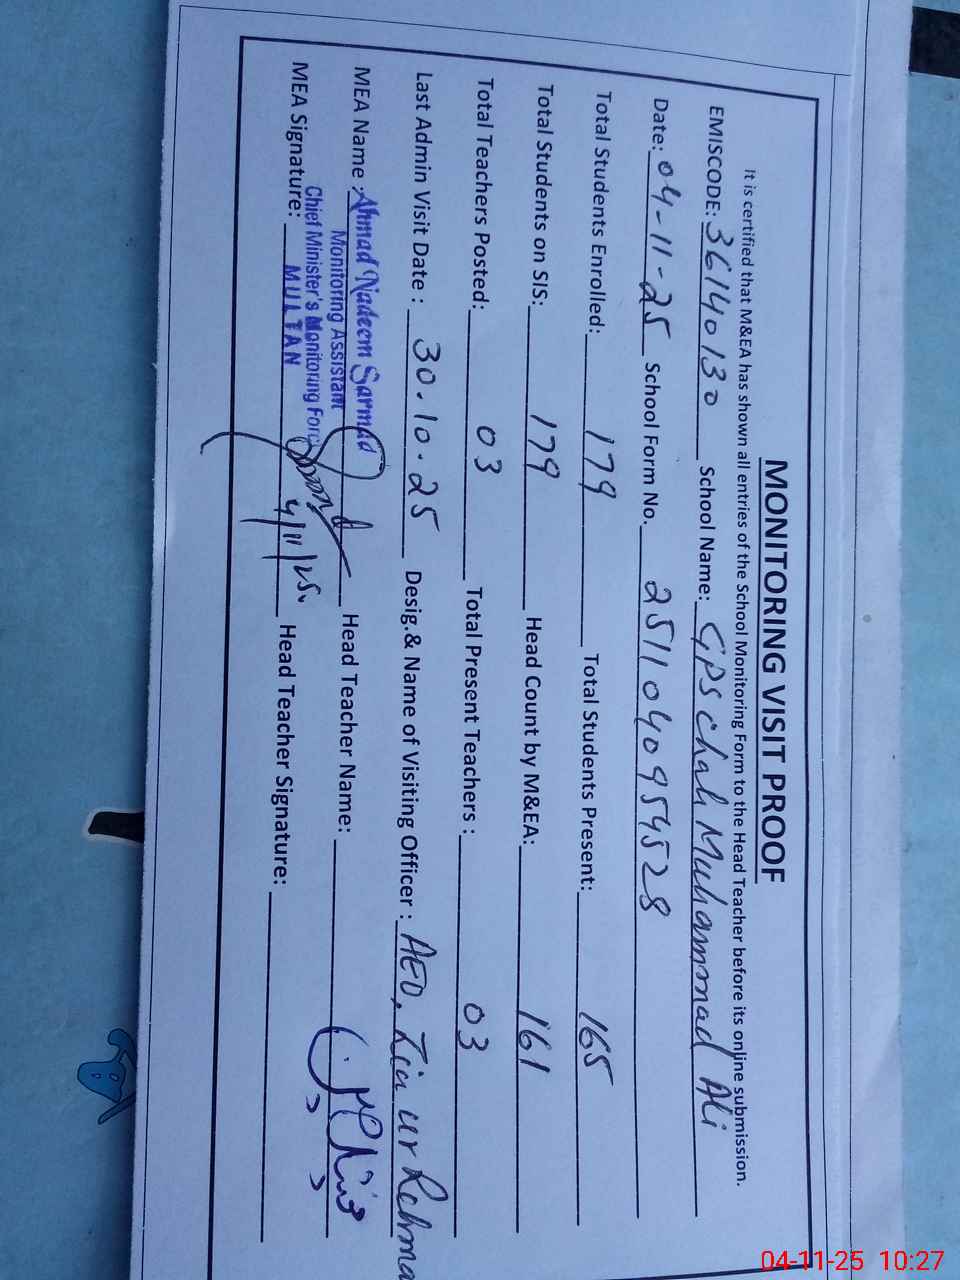 MONITORING VISIT PROOF
It is certified that M&EA has shown all entries of the School Monitoring Form to the Head Teacher before its online submission.
EMISCODE: 36140130 School Name: GPS chah Muhammad Ali
Date: 04-11-25 School Form No. 2511040954528
Total Students Enrolled: 179 Total Students Present: 165
Total Students on SIS: 179 Head Count by M&EA: 161
Total Teachers Posted: 03 Total Present Teachers : 03
Last Admin Visit Date : 30.10.25 Desig.& Name of Visiting Officer : AEO, Zia ur Rehma
MEA Name : Ahmad Nadeem Sarmad Head Teacher Name:
Monitoring Assistant
Chief Minister's Monitoring Force
MEA Signature: MULTAN 4/11/25. Head Teacher Signature:
04-11-25 10:27